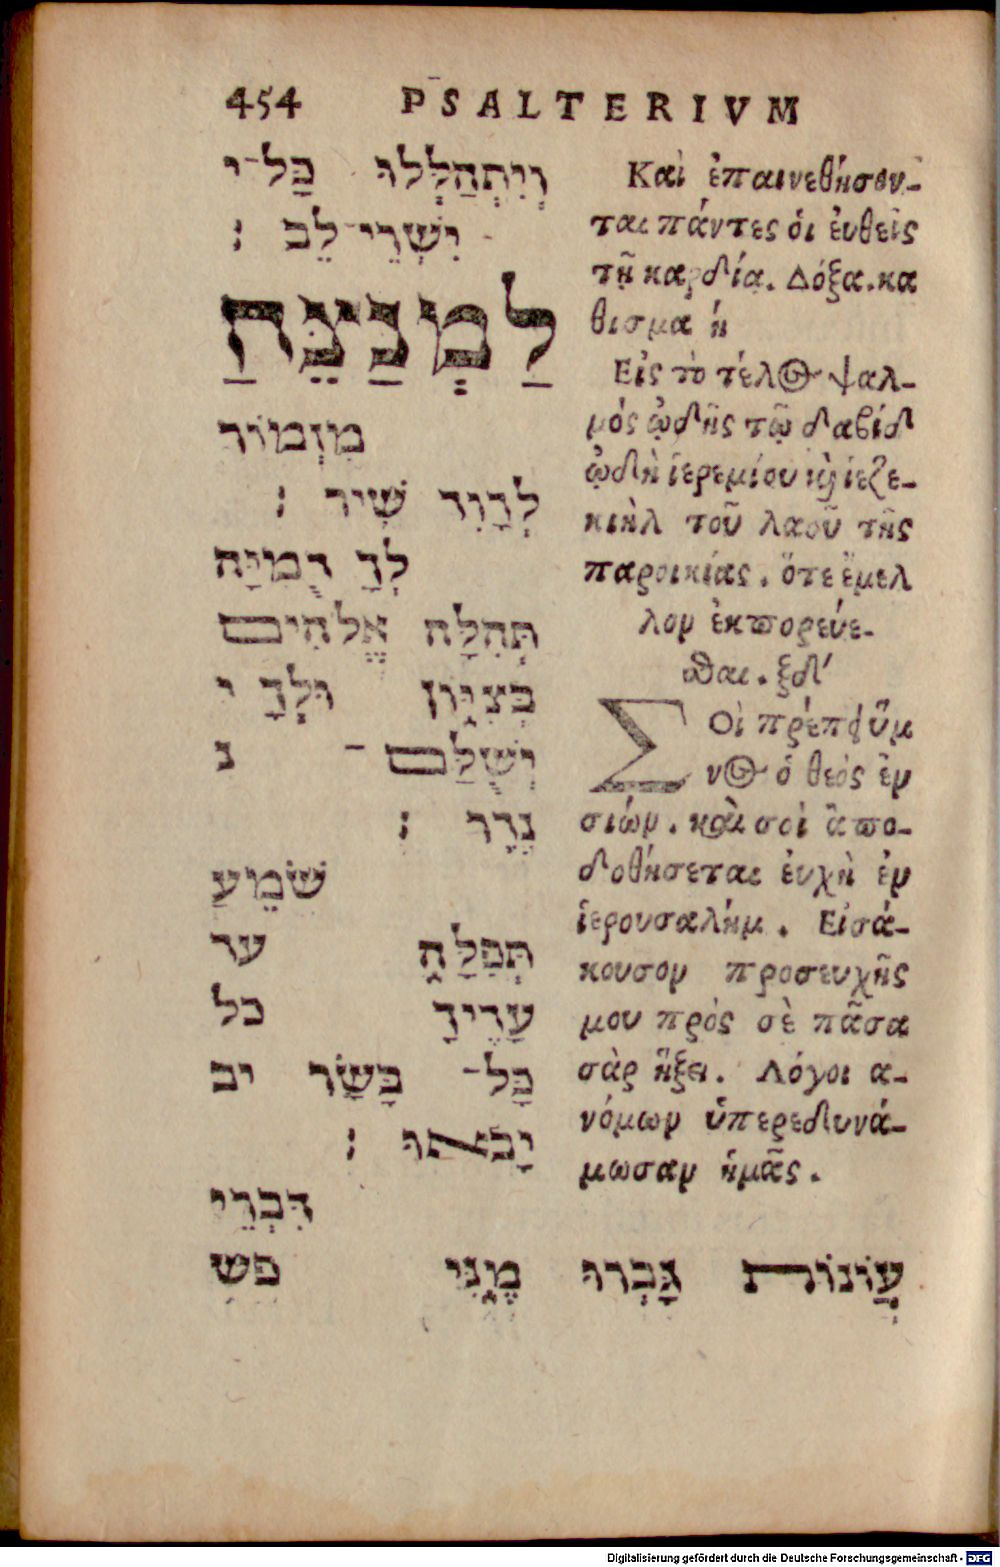 454 PSALTERIVM
וְיִתְהַלְלוּ כָּל־י
יִשְׁרֵי־לֵב ׃
לַמְנַצֵּחַ
מִזְמוֹר
לְדָוִד שִׁיר ׃
לְךָ דֻמִיָּה
תְּהִלָּה אֱלֹהִים
בְּצִיּוֹן וּלְךָ י
יְשֻׁלַּם־ נ
נֶדֶר ׃
שֹׁמֵעַ
תְּפִלָּה עד
עָדֶיךָ כל
כָּל־ בָּשָׂר יב
יָבֹאוּ ׃
דִּבְרֵי
עֲוֹנוֹת גָּבְרוּ מֶנִּי פש
Καὶ ἐπαινεθήσον-
ται πάντες ὁι ἐυθεῖς
τῇ καρδίᾳ. Δόξα. κα
θισμα ἡ
Εἰς τὸ τέλος ψαλ-
μός ᾠδῆς τῷ δαβίδ
ᾠδὴ ἱερεμίου καὶ ἰεζε-
κιὴλ τοῦ λαοῦ τῆς
παροικίας. ὅτε ἔμελ
λον ἐκπορεύε-
σθαι. ξδʹ
ΣΟὶ πρέπει ὕμ
νος ὁ θεὸς ἐν
σιών. καὶ σοὶ ἀπο-
δοθήσεται ἐυχὴ ἐν
ἱερουσαλήμ. Εἰσά-
κουσον προσευχῆς
μου πρὸς σὲ πᾶσα
σὰρ ἥξει. Λόγοι α-
νόμων ὑπερεδυνά-
μωσαν ἡμᾶς.
Digitalisierung gefördert durch die Deutsche Forschungsgemeinschaft - DFG